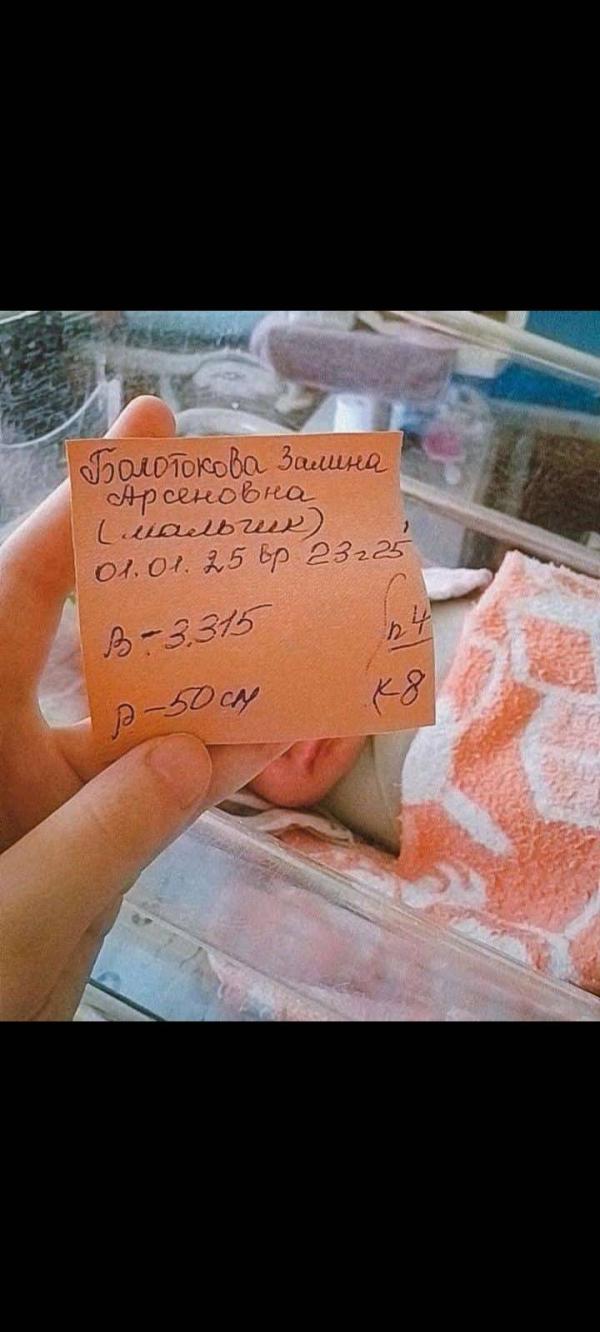 Болотокова Залина
Арсеновна
(мальчик)
01.01.25 вр 23г25'
В - 3.315
р - 50 см
п4
к-8